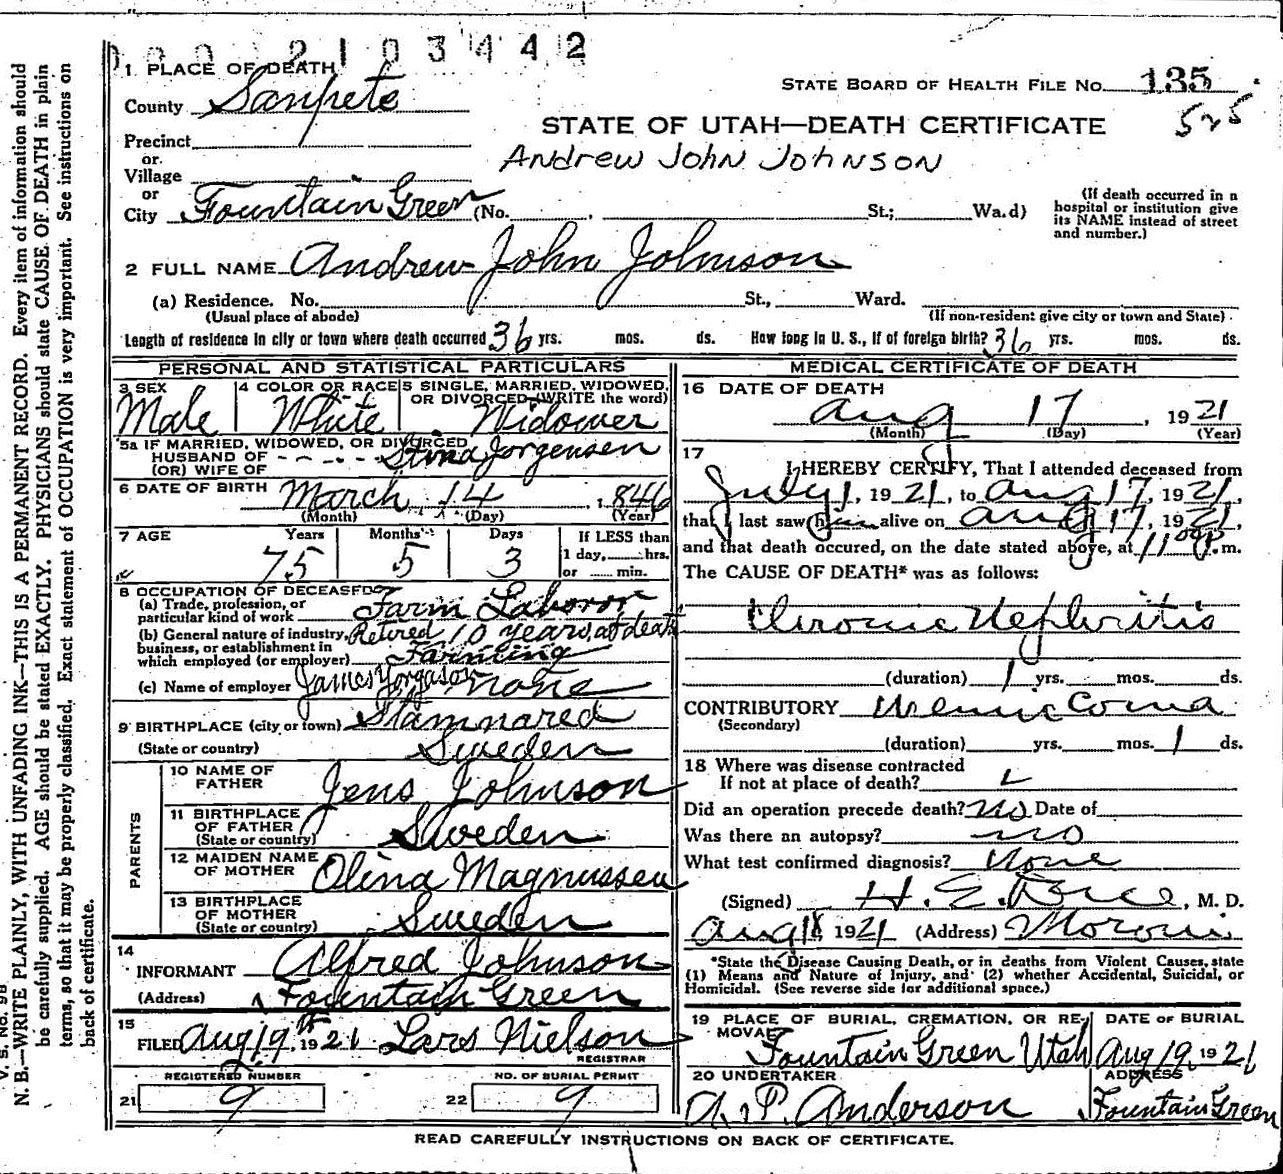 000 2103442
1 PLACE OF DEATH
County Sanpete
STATE BOARD OF HEALTH FILE NO. 135
525
STATE OF UTAH—DEATH CERTIFICATE
Andrew John Johnson
Precinct
or
Village
or
City Fountain Green (No. , St.; Wa.d)
(If death occurred in a hospital or institution give its NAME instead of street and number.)
2 FULL NAME Andrew John Johnson
(a) Residence. No. St., Ward.
(Usual place of abode) (If non-resident give city or town and State)
Length of residence in city or town where death occurred 36 yrs. mos. ds. How long in U. S., if of foreign birth? 36 yrs. mos. ds.
PERSONAL AND STATISTICAL PARTICULARS
3 SEX Male
4 COLOR OR RACE White
5 SINGLE, MARRIED, WIDOWED, OR DIVORCED (WRITE the word) Widower
5a IF MARRIED, WIDOWED, OR DIVORCED
HUSBAND OF Stina Jorgensen
(OR) WIFE OF
6 DATE OF BIRTH March 14, 1846
(Month) (Day) (Year)
7 AGE Years 75 Months 5 Days 3
If LESS than
1 day, hrs.
or min.
8 OCCUPATION OF DECEASED
(a) Trade, profession, or
particular kind of work Farm Laboror
(b) General nature of industry, Retired 10 years at death
business, or establishment in
which employed (or employer) Farming
(c) Name of employer James Yorgason none
9 BIRTHPLACE (city or town) Stamnared
(State or country) Sweden
PARENTS
10 NAME OF
FATHER Jens Johnson
11 BIRTHPLACE
OF FATHER
(State or country) Sweden
12 MAIDEN NAME
OF MOTHER Olina Magnussen
13 BIRTHPLACE
OF MOTHER
(State or country) Sweden
14
INFORMANT Alfred Johnson
(Address) Fountain Green
15
FILED Aug 19th 1921 Lars Nielson
REGISTRAR
REGISTERED NUMBER NO. OF BURIAL PERMIT
21 9 22 9
MEDICAL CERTIFICATE OF DEATH
16 DATE OF DEATH
Aug 17, 1921
(Month) (Day) (Year)
17
I HEREBY CERTIFY, That I attended deceased from
July 1, 1921, to Aug 17, 1921,
that I last saw him alive on Aug 17, 1921,
and that death occured, on the date stated above, at 11 00 p.m.
The CAUSE OF DEATH* was as follows:
Chronic Nephritis
(duration) 1 yrs. mos. ds.
CONTRIBUTORY Uremic Coma
(Secondary)
(duration) yrs. mos. 1 ds.
18 Where was disease contracted
If not at place of death?
Did an operation precede death? No Date of
Was there an autopsy? no
What test confirmed diagnosis? None
(Signed) H. E. , M. D.
Aug 18 1921 (Address) Moroni
*State the Disease Causing Death, or in deaths from Violent Causes, state
(1) Means and Nature of Injury, and (2) whether Accidental, Suicidal, or
Homicidal. (See reverse side for additional space.)
19 PLACE OF BURIAL, CREMATION, OR RE-
MOVAL Fountain Green Utah
DATE OF BURIAL
Aug 19 1921
20 UNDERTAKER
A. P. Anderson
ADDRESS
Fountain Green
READ CAREFULLY INSTRUCTIONS ON BACK OF CERTIFICATE.
V. S. No. 9B
N. B.—WRITE PLAINLY, WITH UNFADING INK—THIS IS A PERMANENT RECORD. Every item of information should
be carefully supplied. AGE should be stated EXACTLY. PHYSICIANS should state CAUSE OF DEATH in plain
terms, so that it may be properly classified. Exact statement of OCCUPATION is very important. See instructions on
back of certificate.